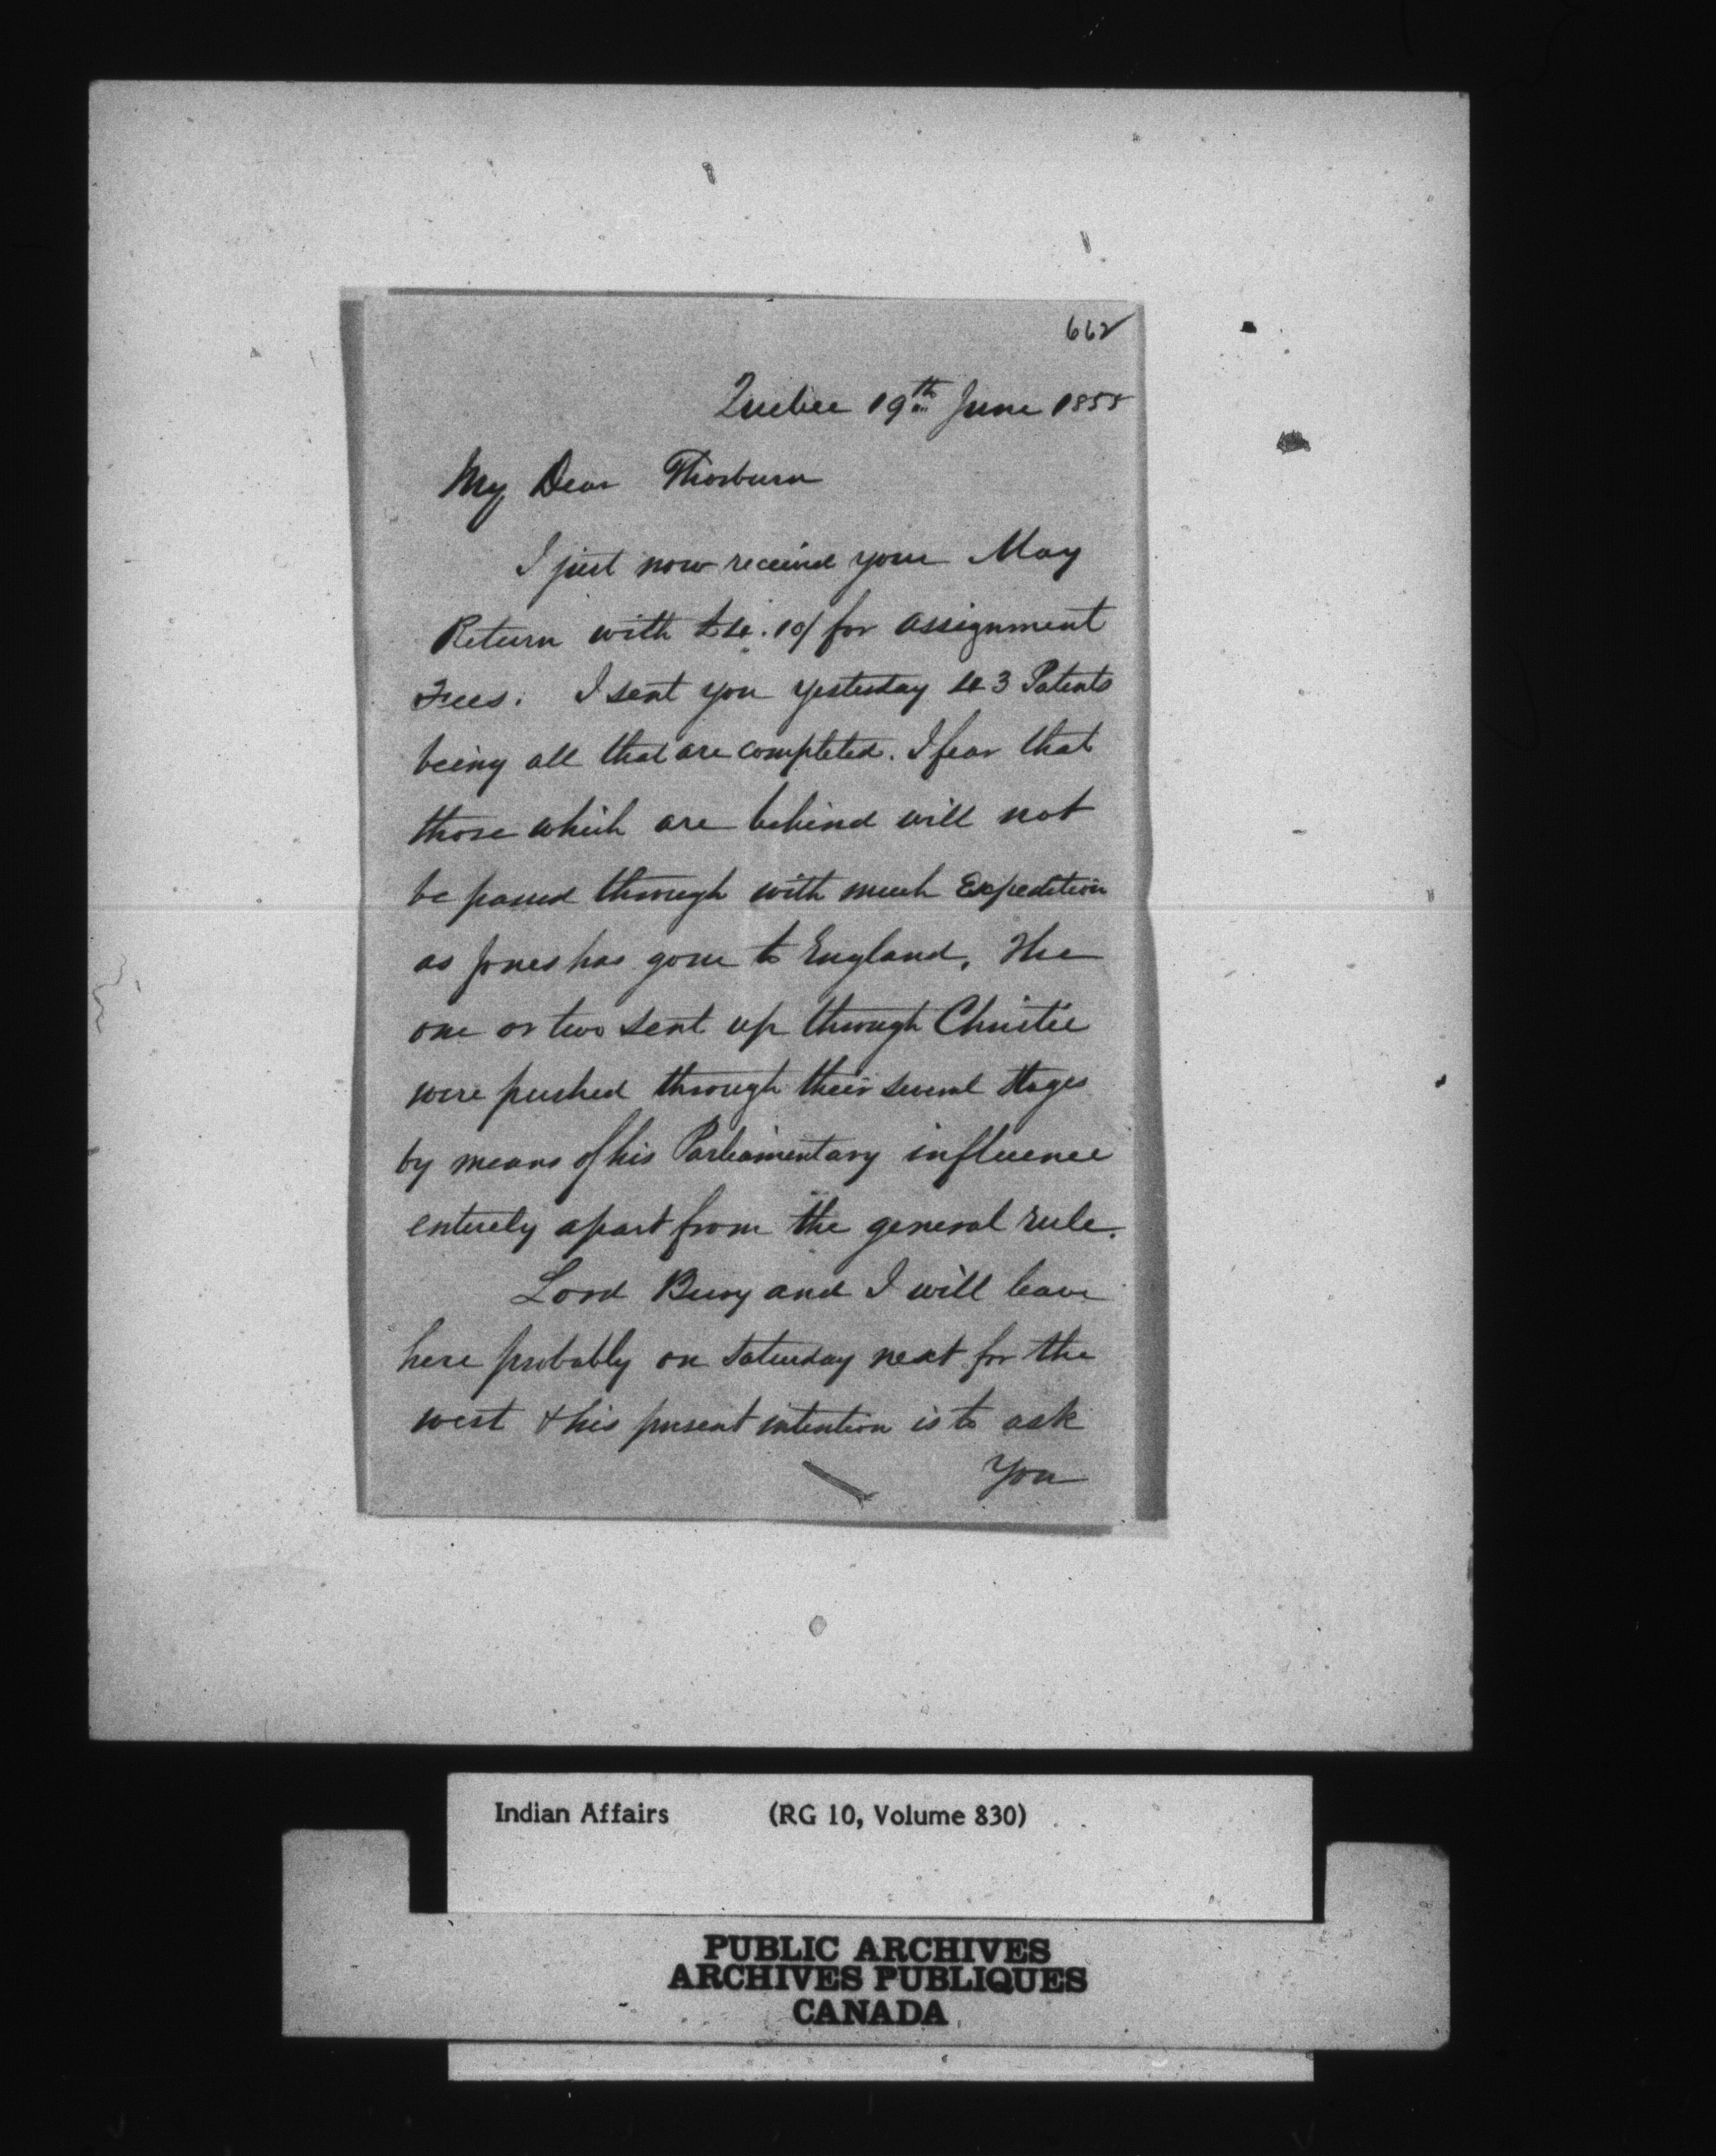 662
Quebec 19th June 1855
My Dear Thorburn
I just now received your May
Return with £4.10/ for assignment
Fees. I sent you yesterday 43 Patents
being all that are completed. I fear that
those which are behind will not
be passed through with much Expedition
as Jones has gone to England. The
one or two sent up through Christie
were pushed through their several stages
by means of his Parliamentary influence
entirely apart from the general rule.
Lord Bury and I will leave
here probably on Saturday next for the
west & his present intention is to ask
You
Indian Affairs (RG 10, Volume 830)
PUBLIC ARCHIVES
ARCHIVES PUBLIQUES
CANADA